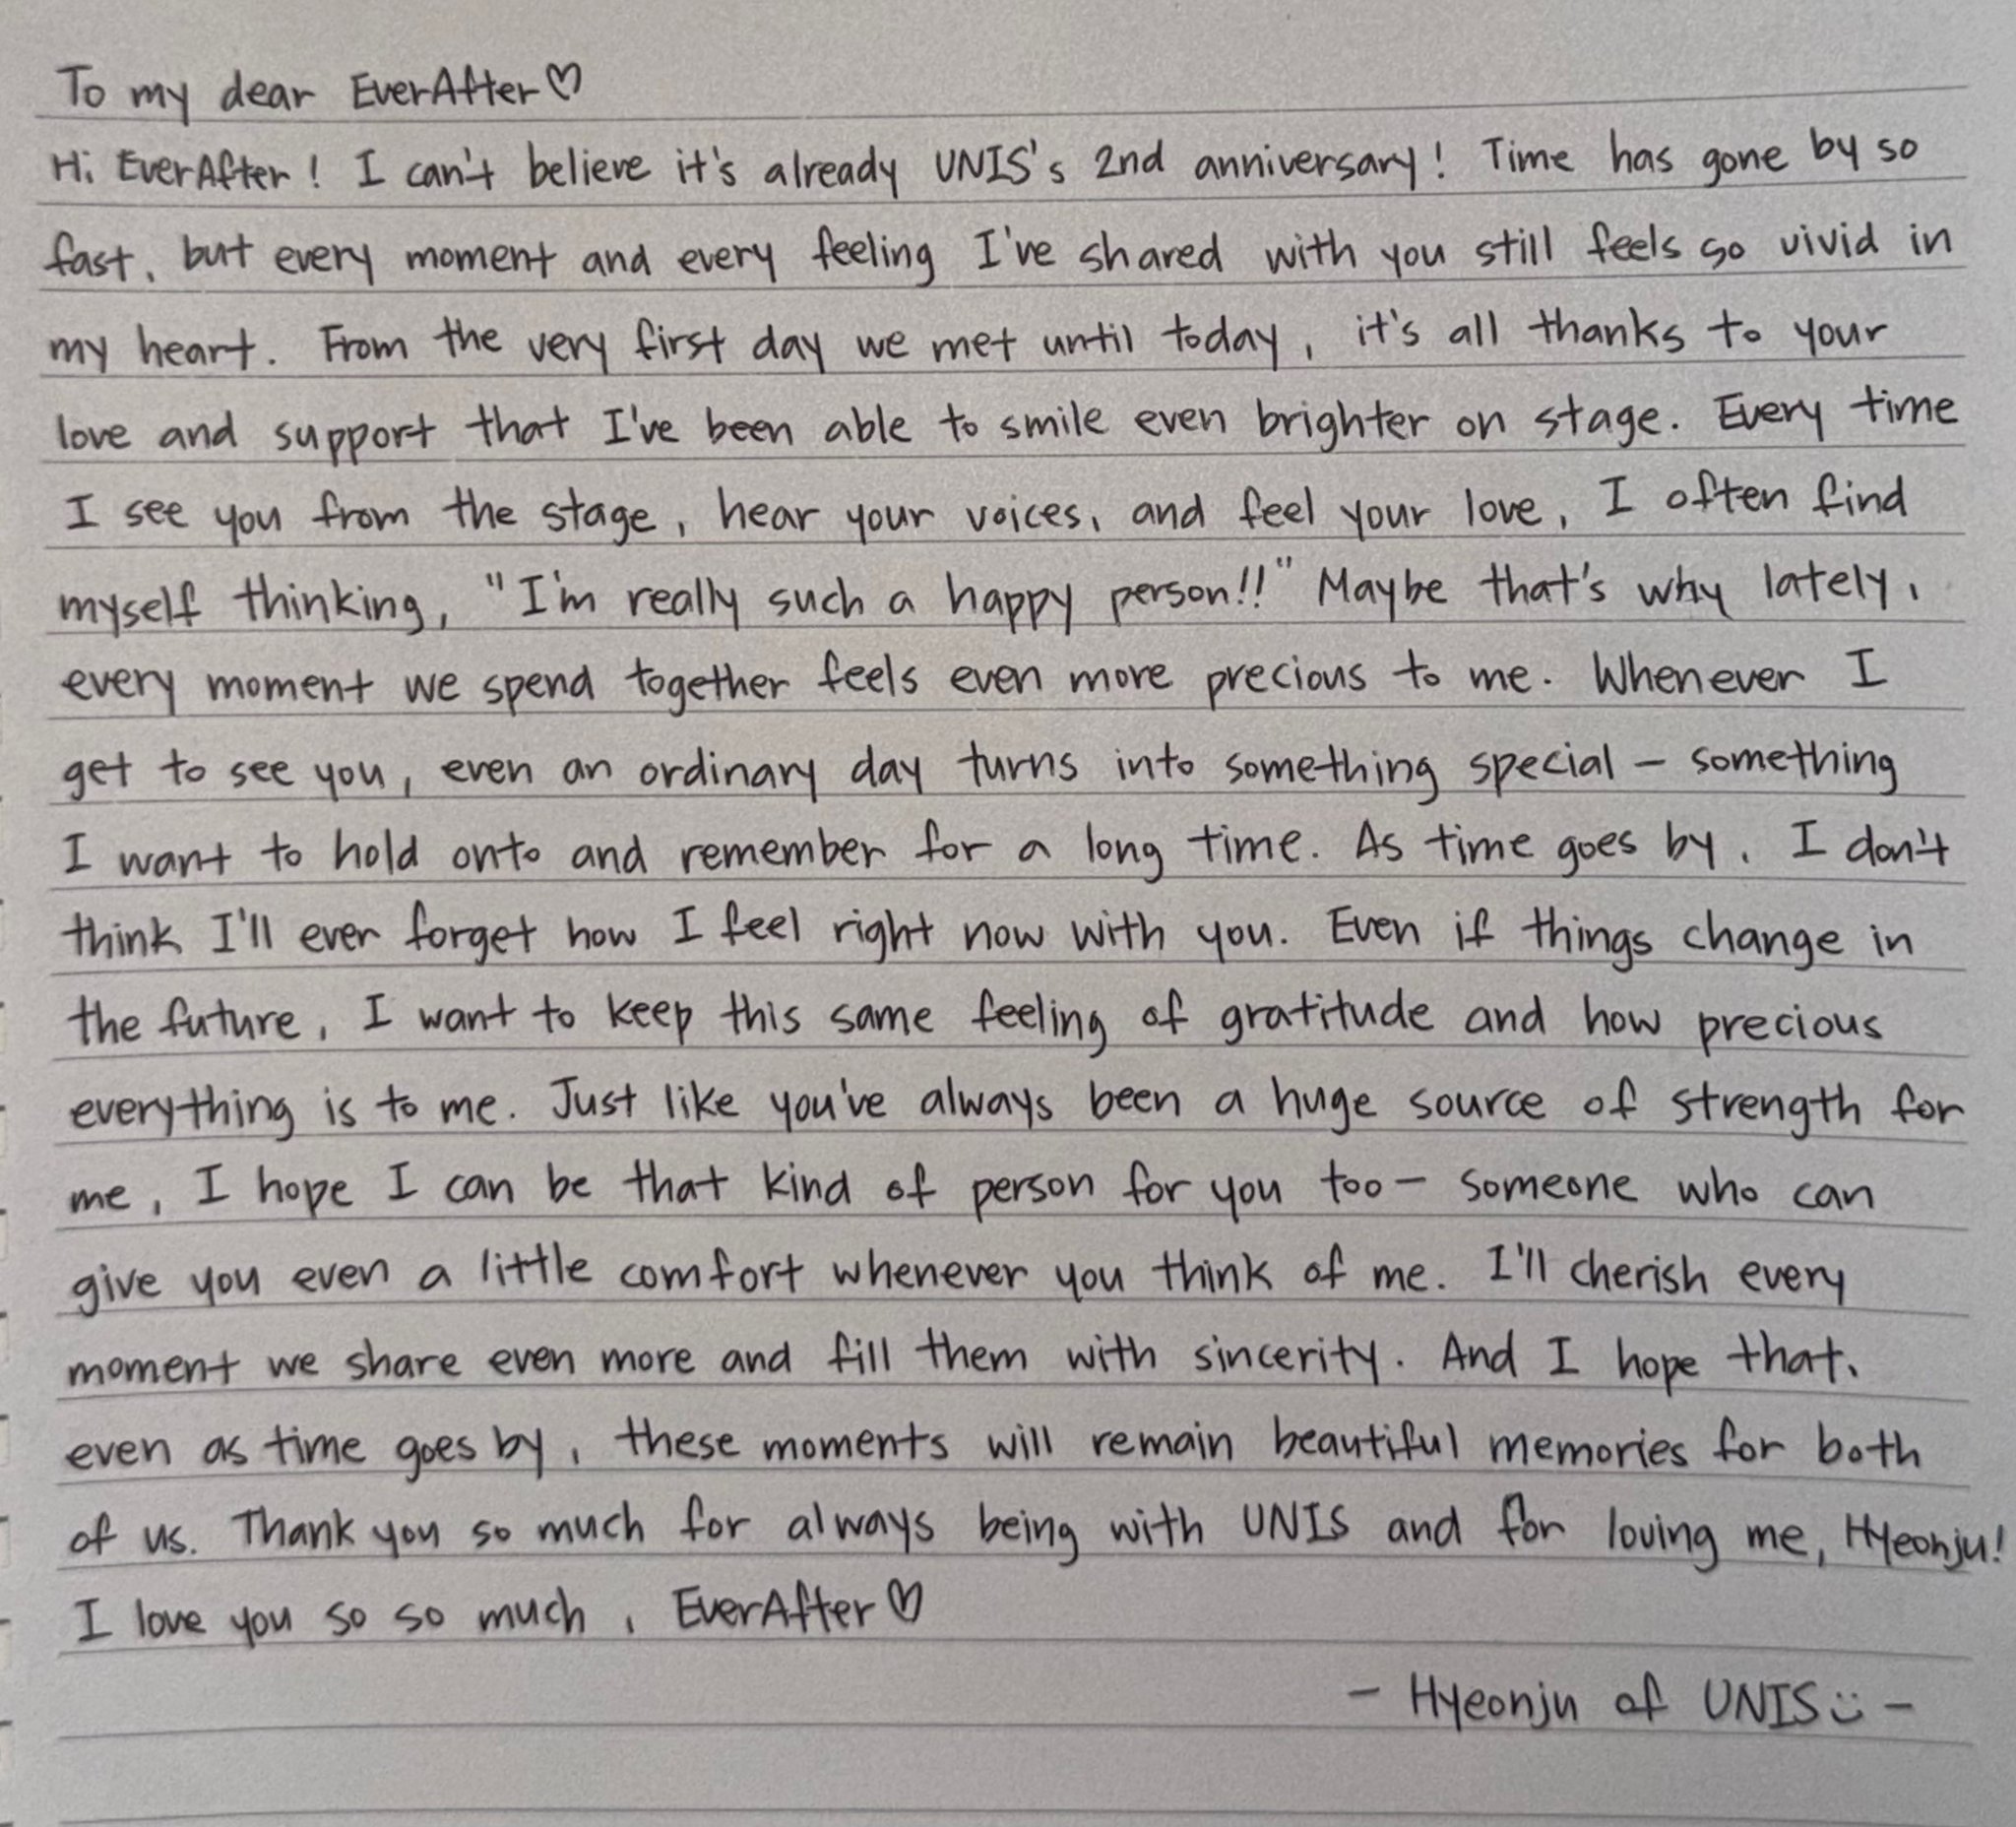 To my dear EverAfter♡
Hi EverAfter! I can't believe it's already UNIS's 2nd anniversary! Time has gone by so
fast, but every moment and every feeling I've shared with you still feels so vivid in
my heart. From the very first day we met until today, it's all thanks to your
love and support that I've been able to smile even brighter on stage. Every time
I see you from the stage, hear your voices, and feel your love, I often find
myself thinking, "I'm really such a happy person!!" Maybe that's why lately,
every moment we spend together feels even more precious to me. Whenever I
get to see you, even an ordinary day turns into something special – something
I want to hold onto and remember for a long time. As time goes by, I don't
think I'll ever forget how I feel right now with you. Even if things change in
the future, I want to keep this same feeling of gratitude and how precious
everything is to me. Just like you've always been a huge source of strength for
me, I hope I can be that kind of person for you too – someone who can
give you even a little comfort whenever you think of me. I'll cherish every
moment we share even more and fill them with sincerity. And I hope that,
even as time goes by, these moments will remain beautiful memories for both
of us. Thank you so much for always being with UNIS and for loving me, Hyeonju!
I love you so so much, EverAfter♡
- Hyeonju of UNIS :) -